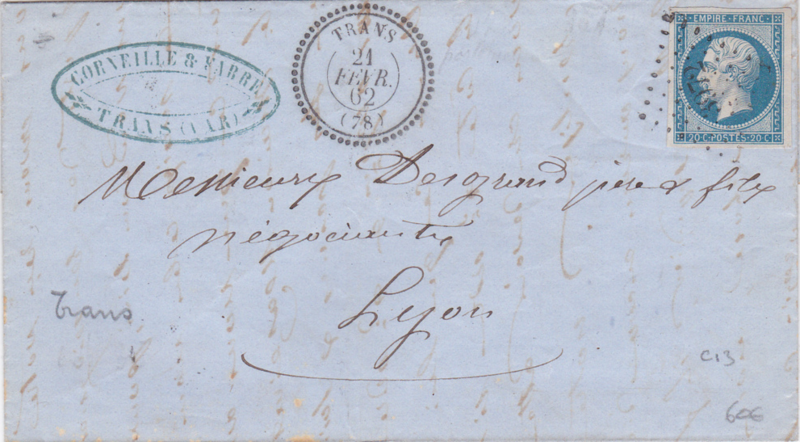 CORNEILLE & FABRE
TRANS (VAR)
TRANS
21
FEVR.
62
(78)
EMPIRE FRANC.
20 C. POSTES 20 C.
Messieurs Desgrand père & fils
négociants
Lyon
Trans
C13
60€